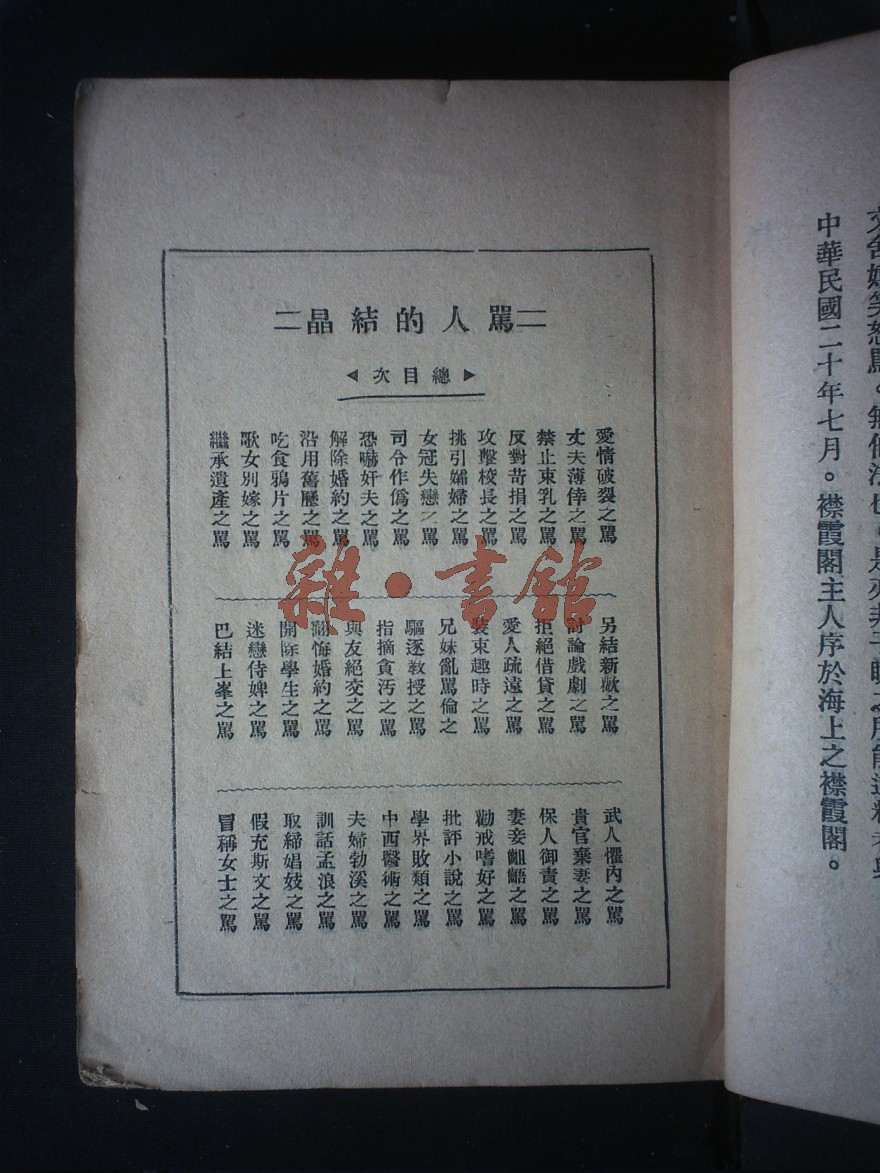 中華民國二十年七月。襟霞閣主人序於海上之襟霞閣。
二罵人的結晶二
總目次
愛情破裂之罵
丈夫薄倖之罵
禁止束乳之罵
反對苛捐之罵
攻擊校長之罵
挑引孀婦之罵
女冠失戀之罵
司令作僞之罵
恐嚇奸夫之罵
解除婚約之罵
沿用舊曆之罵
吃食鴉片之罵
歌女別嫁之罵
繼承遺產之罵
另結新歡之罵
討論戲劇之罵
拒絕借貸之罵
愛人疏遠之罵
裝束趣時之罵
兄妹亂罵倫之
驅逐教授之罵
指摘貪汚之罵
與友絕交之罵
翻悔婚約之罵
開除學生之罵
迷戀侍婢之罵
巴結上峯之罵
武人懼內之罵
貴官棄妻之罵
保人御責之罵
妻妾齟齬之罵
勸戒嗜好之罵
批評小說之罵
學界敗類之罵
中西醫術之罵
夫婦勃溪之罵
訓話孟浪之罵
取締娼妓之罵
假充斯文之罵
冒稱女士之罵
雜·書館